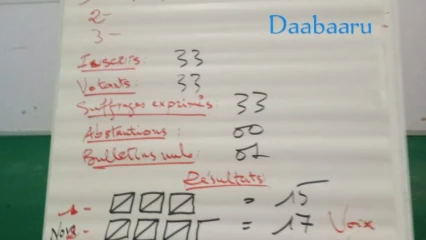 2-
Daabaaru
3-
Inscrits: 33
Votants: 33
Suffrages exprimés: 33
Abstentions: 00
Bulletins nuls: 01
Résultats
1- = 15
= 17 Voix